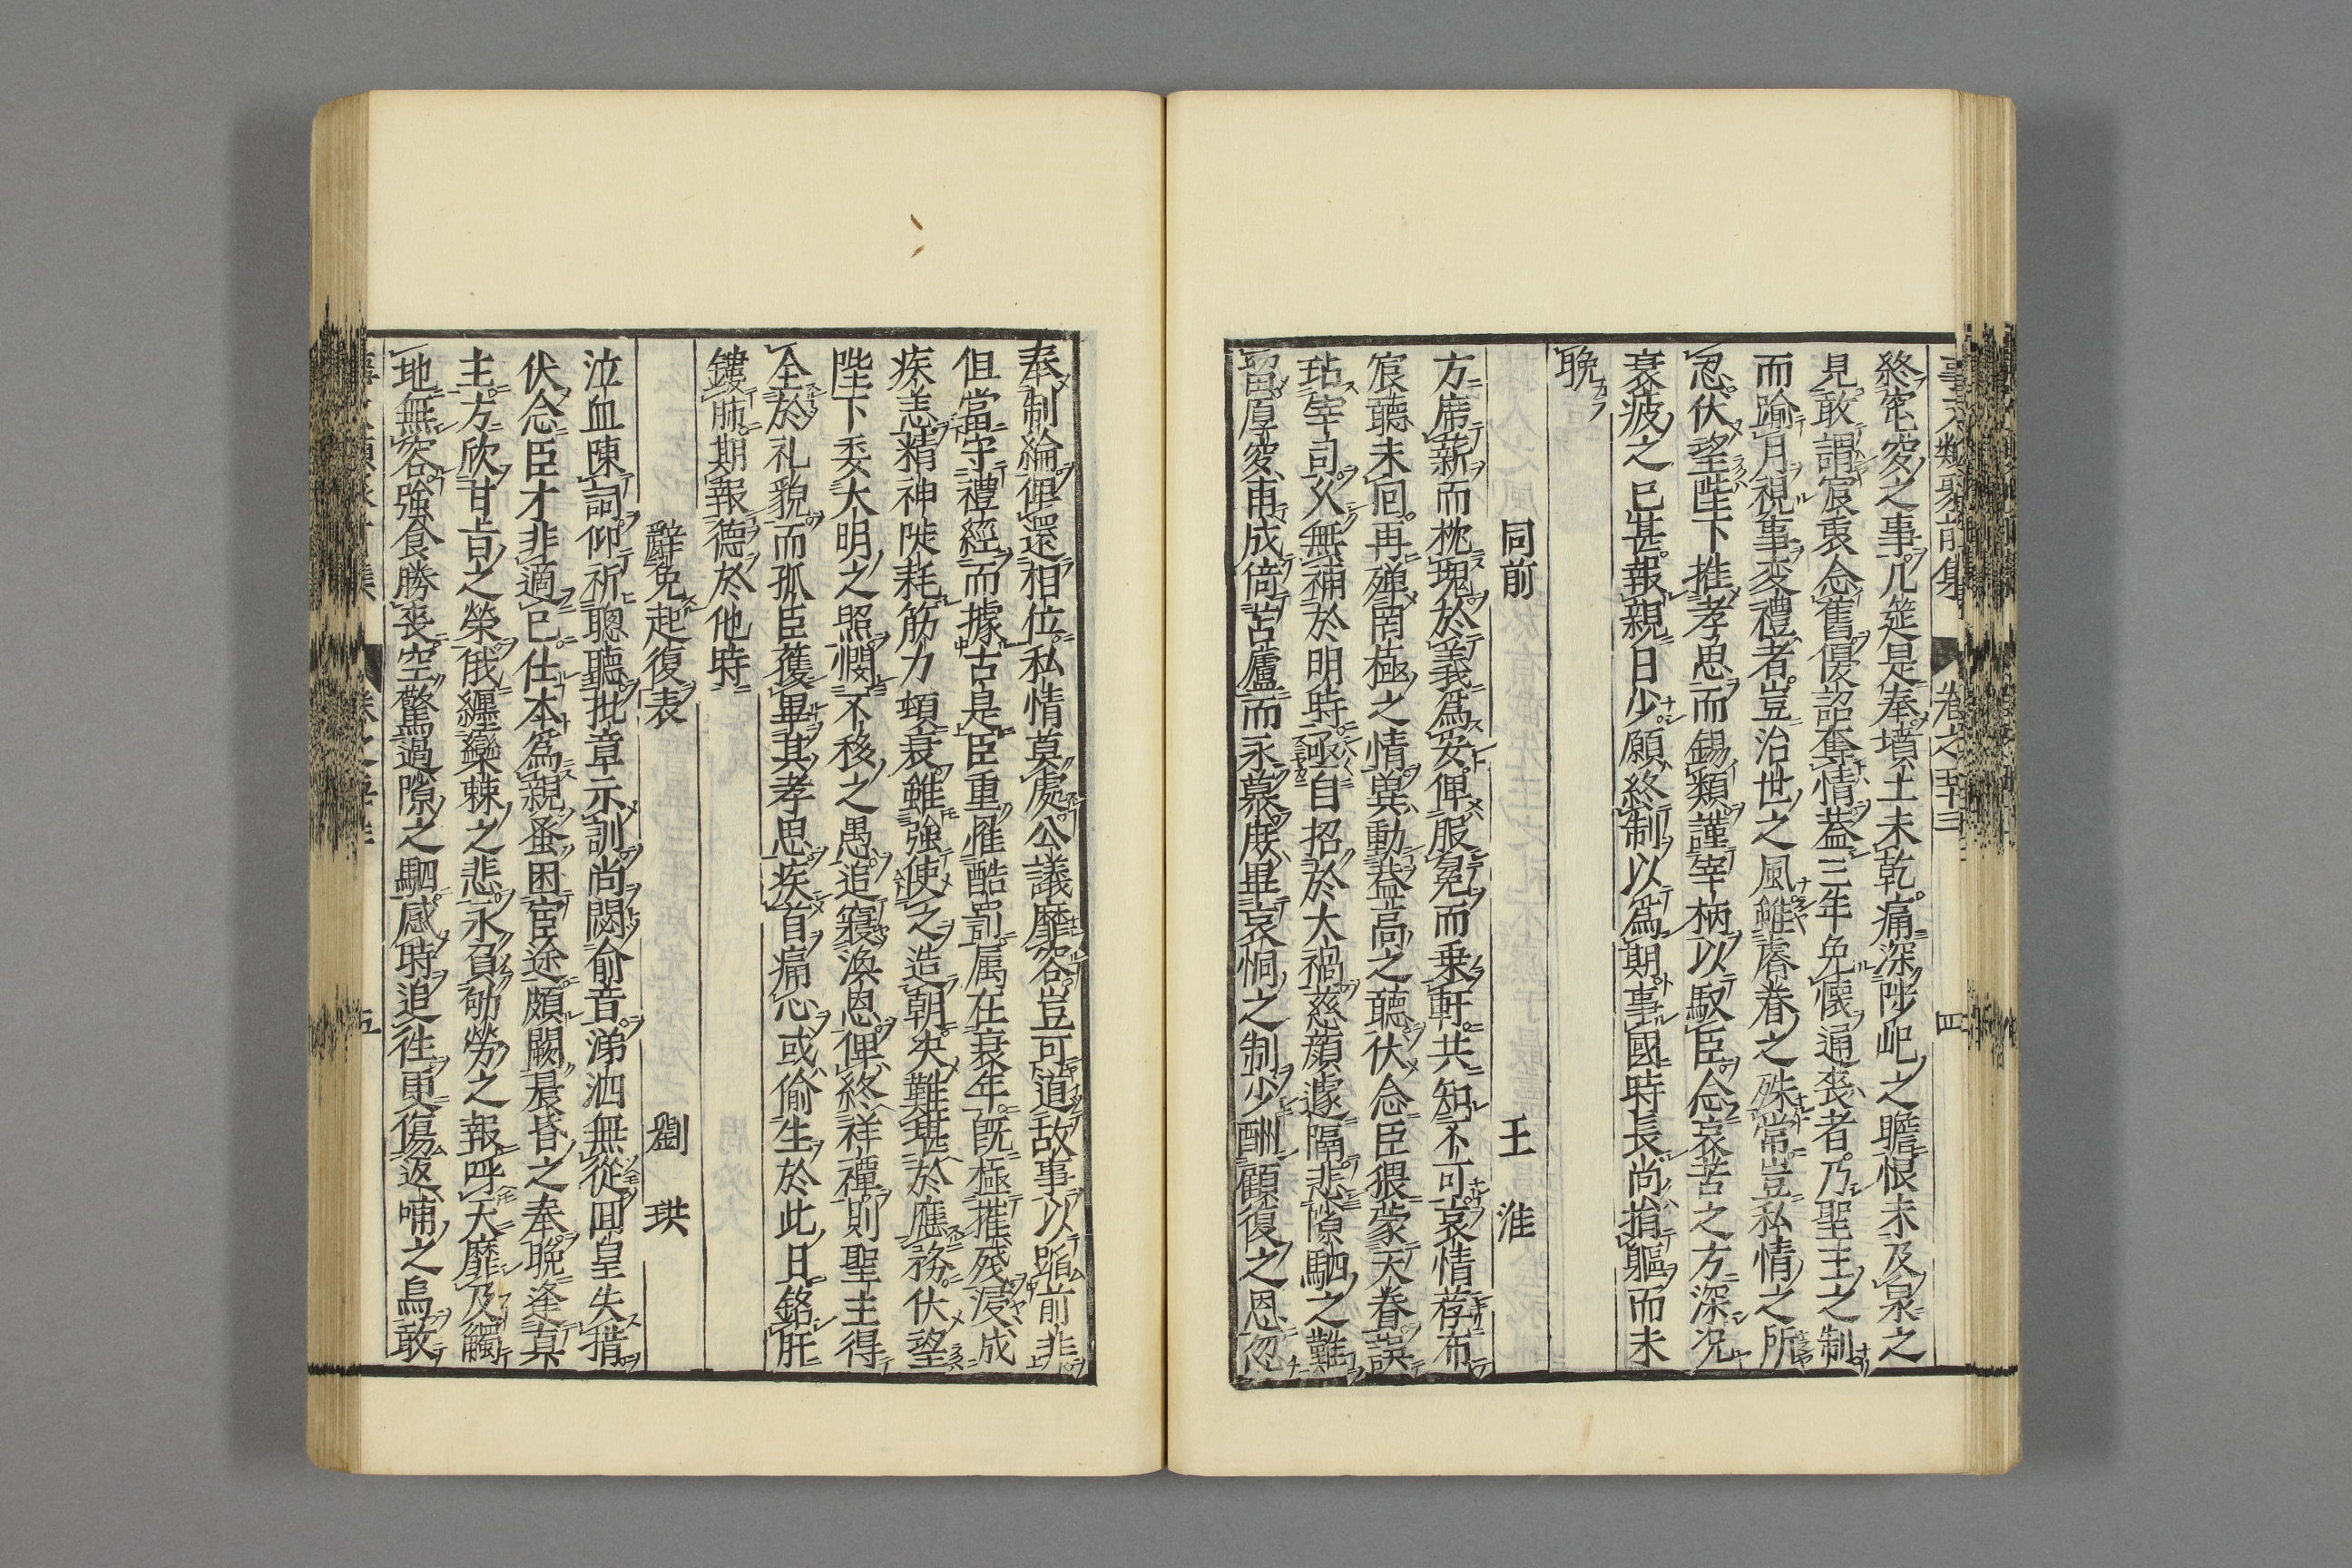 事文類聚前集　卷之五十三　四
終窀窆之事几筵是奉墳土未乾痛深陟岵之瞻恨未及泉之
見敢謂宸衷念舊優詔奪情蓋三年免懷通喪者乃聖王之制
而踰月視事変禮者豈治世之風雖睿眷之殊常豈私情之所
忍伏望陛下推孝思而錫類謹宰柄以馭臣念哀苦之方深况
衰疲之已甚報親日少願終制以為期事國時長尚捐軀而未
晩
同前　王淮
方席薪而枕塊於義為安俾服冕而乗軒共知不可哀情荐布
宸聽未囘再殫罔極之情兾動蓋高之聽伏念臣猥蒙天眷誤
玷宰司乆無補於明時亟自招於大禍慈顔遽隔悲隙駟之難
留厚窆甫成倚苫廬而永慕庶畢哀恫之制少酬顧復之恩忽
奉制綸俾還相位私情莫處公議靡容豈可道故事以蹈前非
但當守禮經而據古是臣重罹酷罰属在衰年既極摧殘浸成
疾恙精神陡耗筋力頓衰雖強使之造朝决難堪於應務伏望
陛下委大明之照憫不移之愚追寢渙恩俾終祥禫則聖主得
全於礼貌而孤臣獲畢其孝思疾首痛心或偷生於此日銘肝
鏤肺期報德於他時
辭免起復表　劉珙
泣血陳詞仰祈聰聽批章示訓尚閟俞音涕泗無從囬皇失措
伏念臣才非適已仕本為親蚤困宦途頗闕晨昏之奉晩逢真
主方欣甘旨之榮俄纏欒棘之悲永負劬勞之報呼天靡及觸
地無容強食勝喪空驚過隙之駟感時追徃更傷返哺之烏敢
五